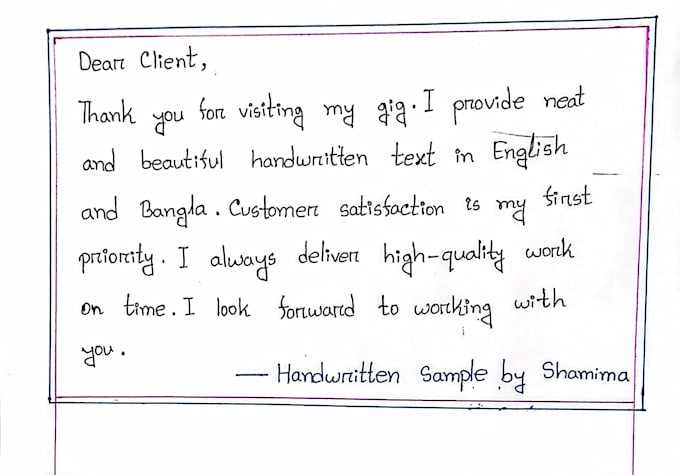 Dear Client,
Thank you for visiting my gig. I provide neat
and beautiful handwritten text in English
and Bangla. Customer satisfaction is my first
priority. I always deliver high-quality work
on time. I look forward to working with
you.
— Handwritten Sample by Shamima